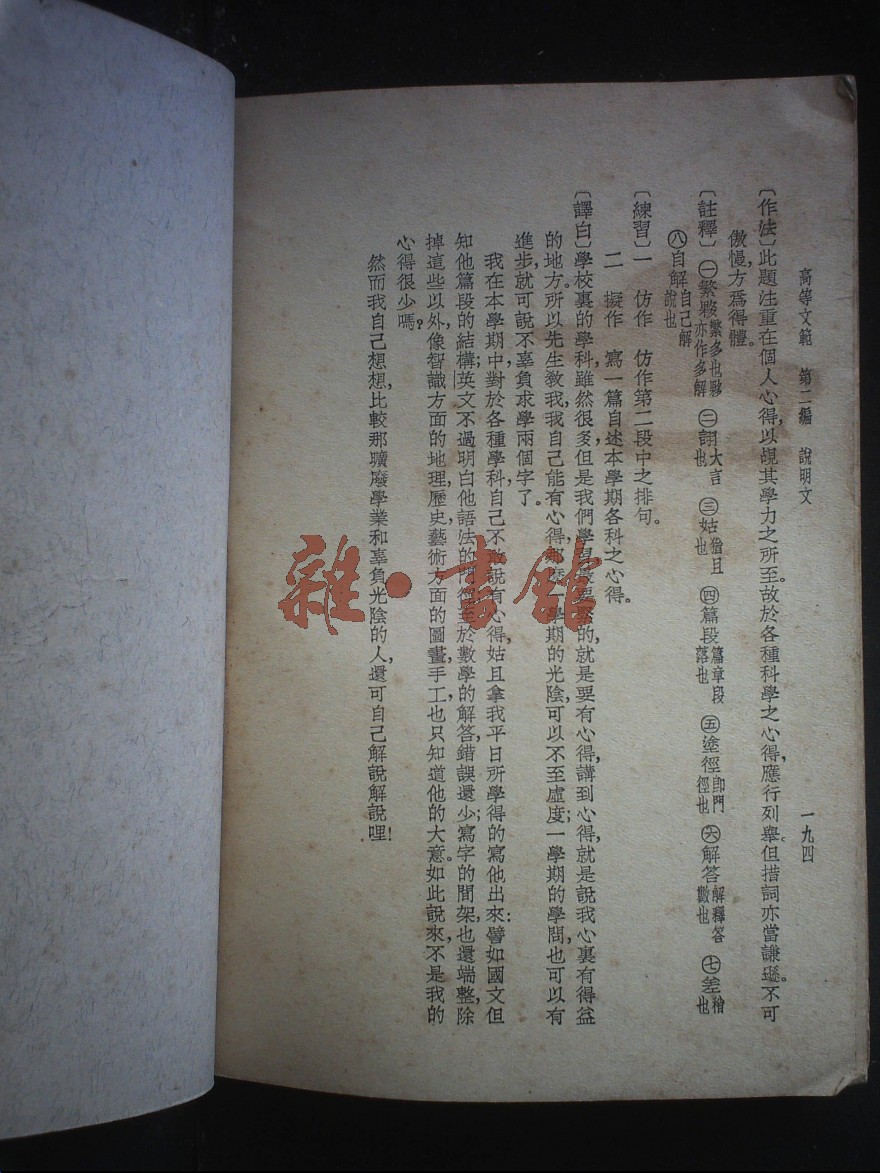 高等文範　第二編　說明文　一九四
〔作法〕此題注重在個人心得，以覘其學力之所至。故於各種科學之心得，應行列舉但措詞亦當謙遜。不可
傲慢，方爲得體。
〔註釋〕㊀繁夥繁多也夥亦作多解　㊁詡大言也　㊂姑僭且也　㊃篇段篇章段落也　㊄塗徑卽門徑也　㊅解答解釋答數也　㊆差稍也
㊇自解自己解說也
〔練習〕一　仿作　仿作第二段中之排句。
二　擬作　寫一篇自述本學期各科之心得。
〔譯白〕學校裏的學科，雖然很多，但是我們學習最要緊的，就是要有心得，講到心得，就是說我心裏有得益
的地方。所以先生敎我，我自己能有心得，那麼學期的光陰，可以不至虛度；一學期的學問，也可以有
進步，就可說不辜負求學兩個字了。
我在本學期中，對於各種學科，自己不敢說有心得，姑且拿我平日所學得的，寫他出來：譬如國文，但
知他篇段的結構；英文不過明白他語法的門徑，至於數學的解答，錯誤還少；寫字的間架，也還端整，除
掉這些以外，像智識方面的地理，歷史，藝術方面的圖畫，手工，也只知道他的大意。如此說來，不是我的
心得很少嗎？
然而我自己想想，比較那曠廢學業和辜負光陰的人，還可自己解說解說哩！
雜·書館